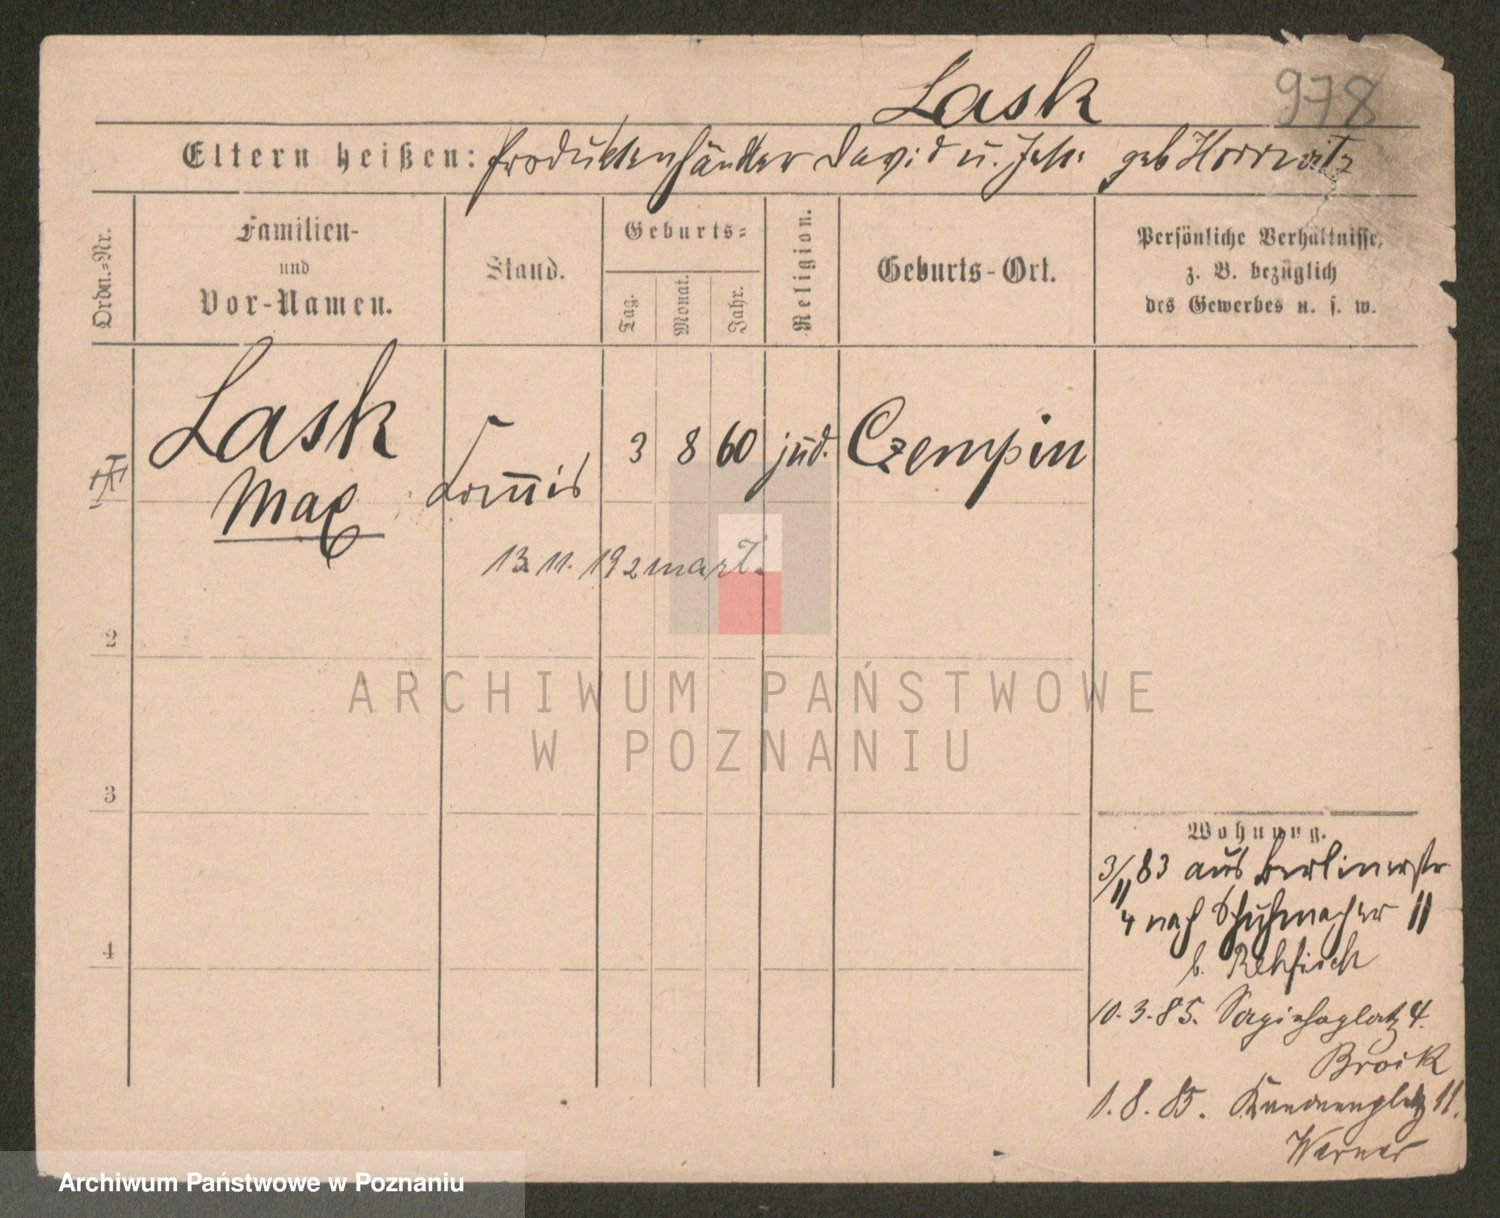 Lask 978
Eltern heißen: Produktenhändler David u. Joh. geb Horrwitz
Ordn.-Nr.
Familien-
und
Vor-Namen.
Stand.
Geburts-
Tag.
Monat.
Jahr.
Religion.
Geburts-Ort.
Persönliche Verhältnisse,
z. B. bezüglich
des Gewerbes u. s. w.
Lask
Max
Commis
3 8 60 jüd. Czempin
13. 11. 192
2
3
4
Wohnung.
3/11 83 aus Berlinerstr
4 nach Schuhmacher 11
b. Rehfisch
10. 3. 85. Sapiehaplatz 4.
Brock
1. 8. 85. 11.
Werner
ARCHIWUM PAŃSTWOWE
W POZNANIU
Archiwum Państwowe w Poznaniu